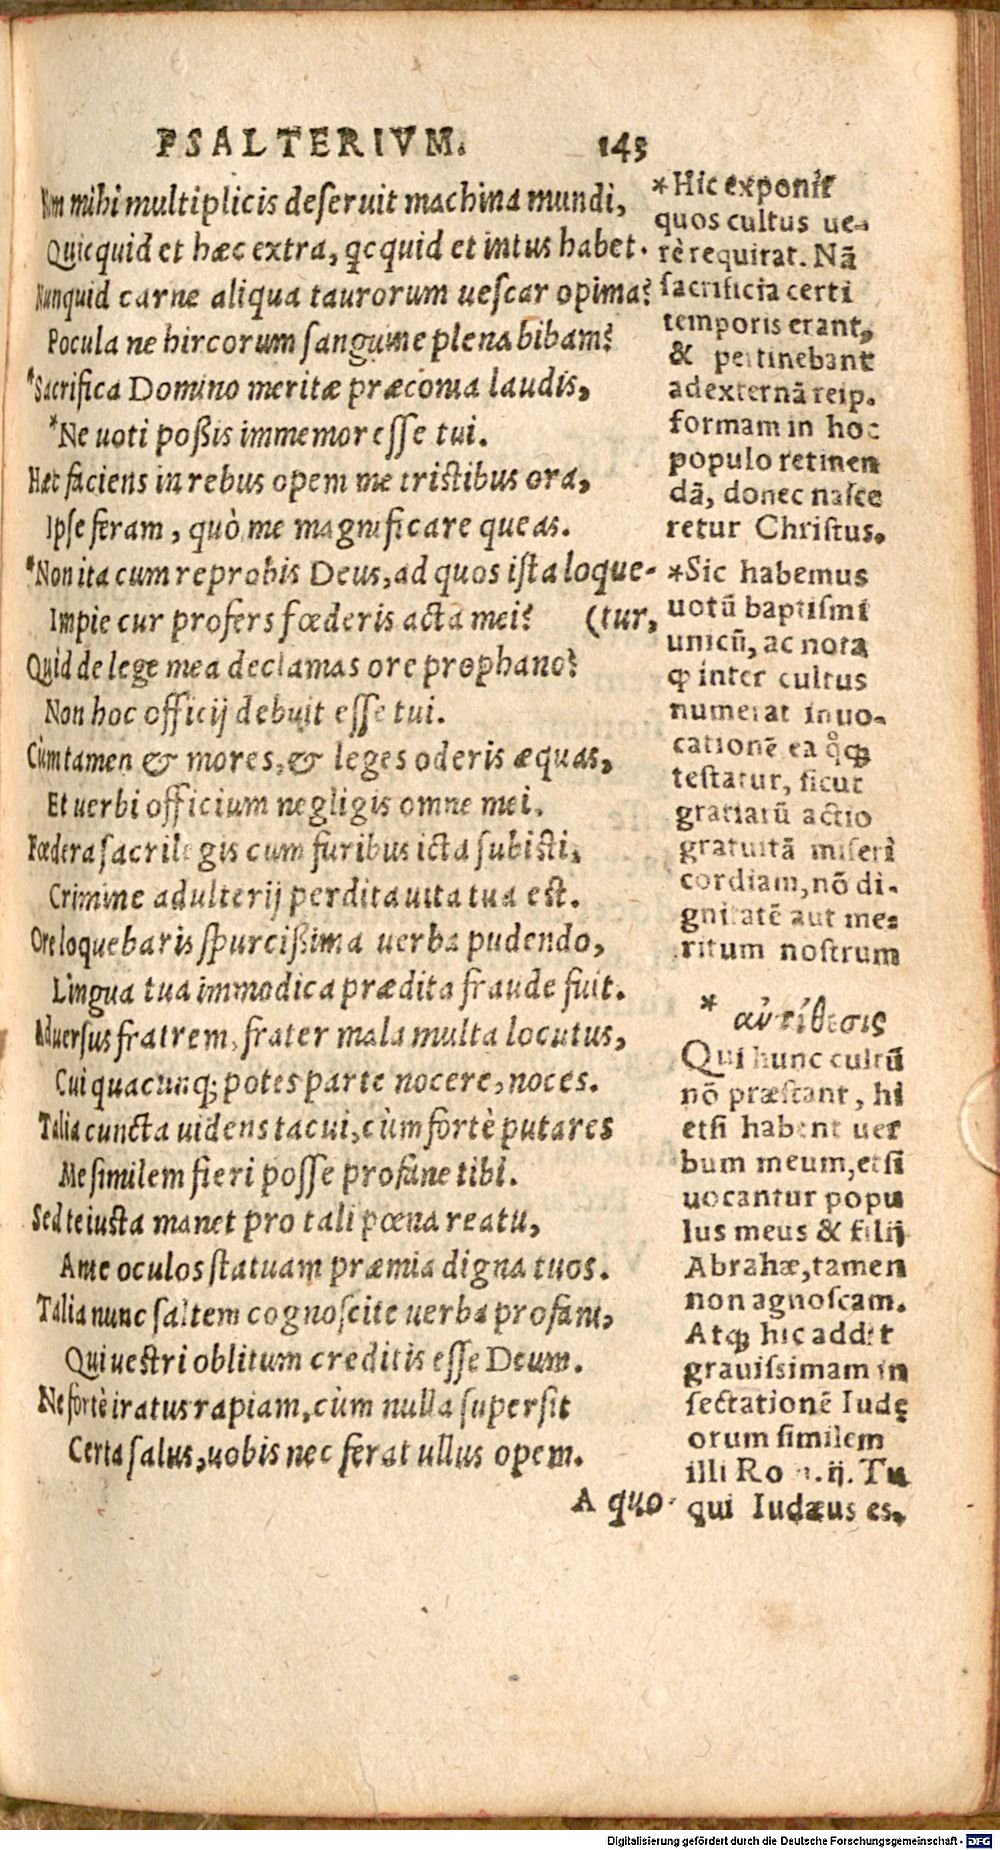 PSALTERIVM. 143
Nam mihi multiplicis deseruit machina mundi,
Quicquid et hæc extra, qcquid et intus habet.
Nunquid carne aliqua taurorum uescar opima?
Pocula ne hircorum sanguine plena bibam?
*Sacrifica Domino meritæ præconia laudis,
*Ne uoti poßis immemor esse tui.
Hæc faciens in rebus opem me tristibus ora,
Ipse feram, quò me magnificare queas.
*Non ita cum reprobis Deus, ad quos ista loque-
Impie cur profers fœderis acta mei? (tur,
Quid de lege mea declamas ore prophano?
Non hoc officij debuit esse tui.
Cùm tamen & mores, & leges oderis æquas,
Et uerbi officium negligis omne mei.
Fœdera sacrilegis cum furibus icta subisti,
Crimine adulterij perdita uita tua est.
Ore loquebaris spurcißima uerba pudendo,
Lingua tua immodica prædita fraude fuit.
Aduersus fratrem, frater mala multa locutus,
Cui quacunq; potes parte nocere, noces.
Talia cuncta uidens tacui, cùm fortè putares
Me similem fieri posse profane tibi.
Sed te iusta manet pro tali pœna reatu,
Ante oculos statuam præmia digna tuos.
Talia nunc saltem cognoscite uerba profani,
Qui uestri oblitum creditis esse Deum.
Ne fortè iratus rapiam, cùm nulla supersit
Certa salus, uobis nec ferat ullus opem.
A quo
*Hic exponit
quos cultus ue-
rè requirat. Nã
sacrificia certi
temporis erant,
& pertinebant
ad externã reip.
formam in hoc
populo retinen
dã, donec nasce
retur Christus.
*Sic habemus
uotũ baptismi
unicũ, ac nota
ꝙ inter cultus
numerat inuo-
cationẽ ea q̊ꝗ
testatur, sicut
gratiarũ actio
gratuitã miseri
cordiam, nõ di-
gnitatẽ aut me-
ritum nostrum
* ἀντίθεσις
Qui hunc cultũ
nõ præstant, hi
etsi habent uer
bum meum, etsi
uocantur popu
lus meus & filij
Abrahæ, tamen
non agnoscam.
Atqꝫ hic addit
grauissimam in
sectationẽ Iudę
orum similem
illi Rom. ij. Tu
qui Iudæus es,
Digitalisierung gefördert durch die Deutsche Forschungsgemeinschaft - DFG